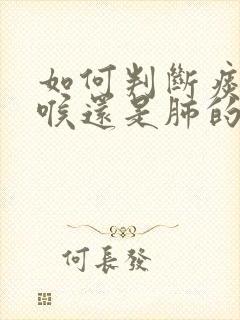 如何判斷痰
喉還是肺的
何長發